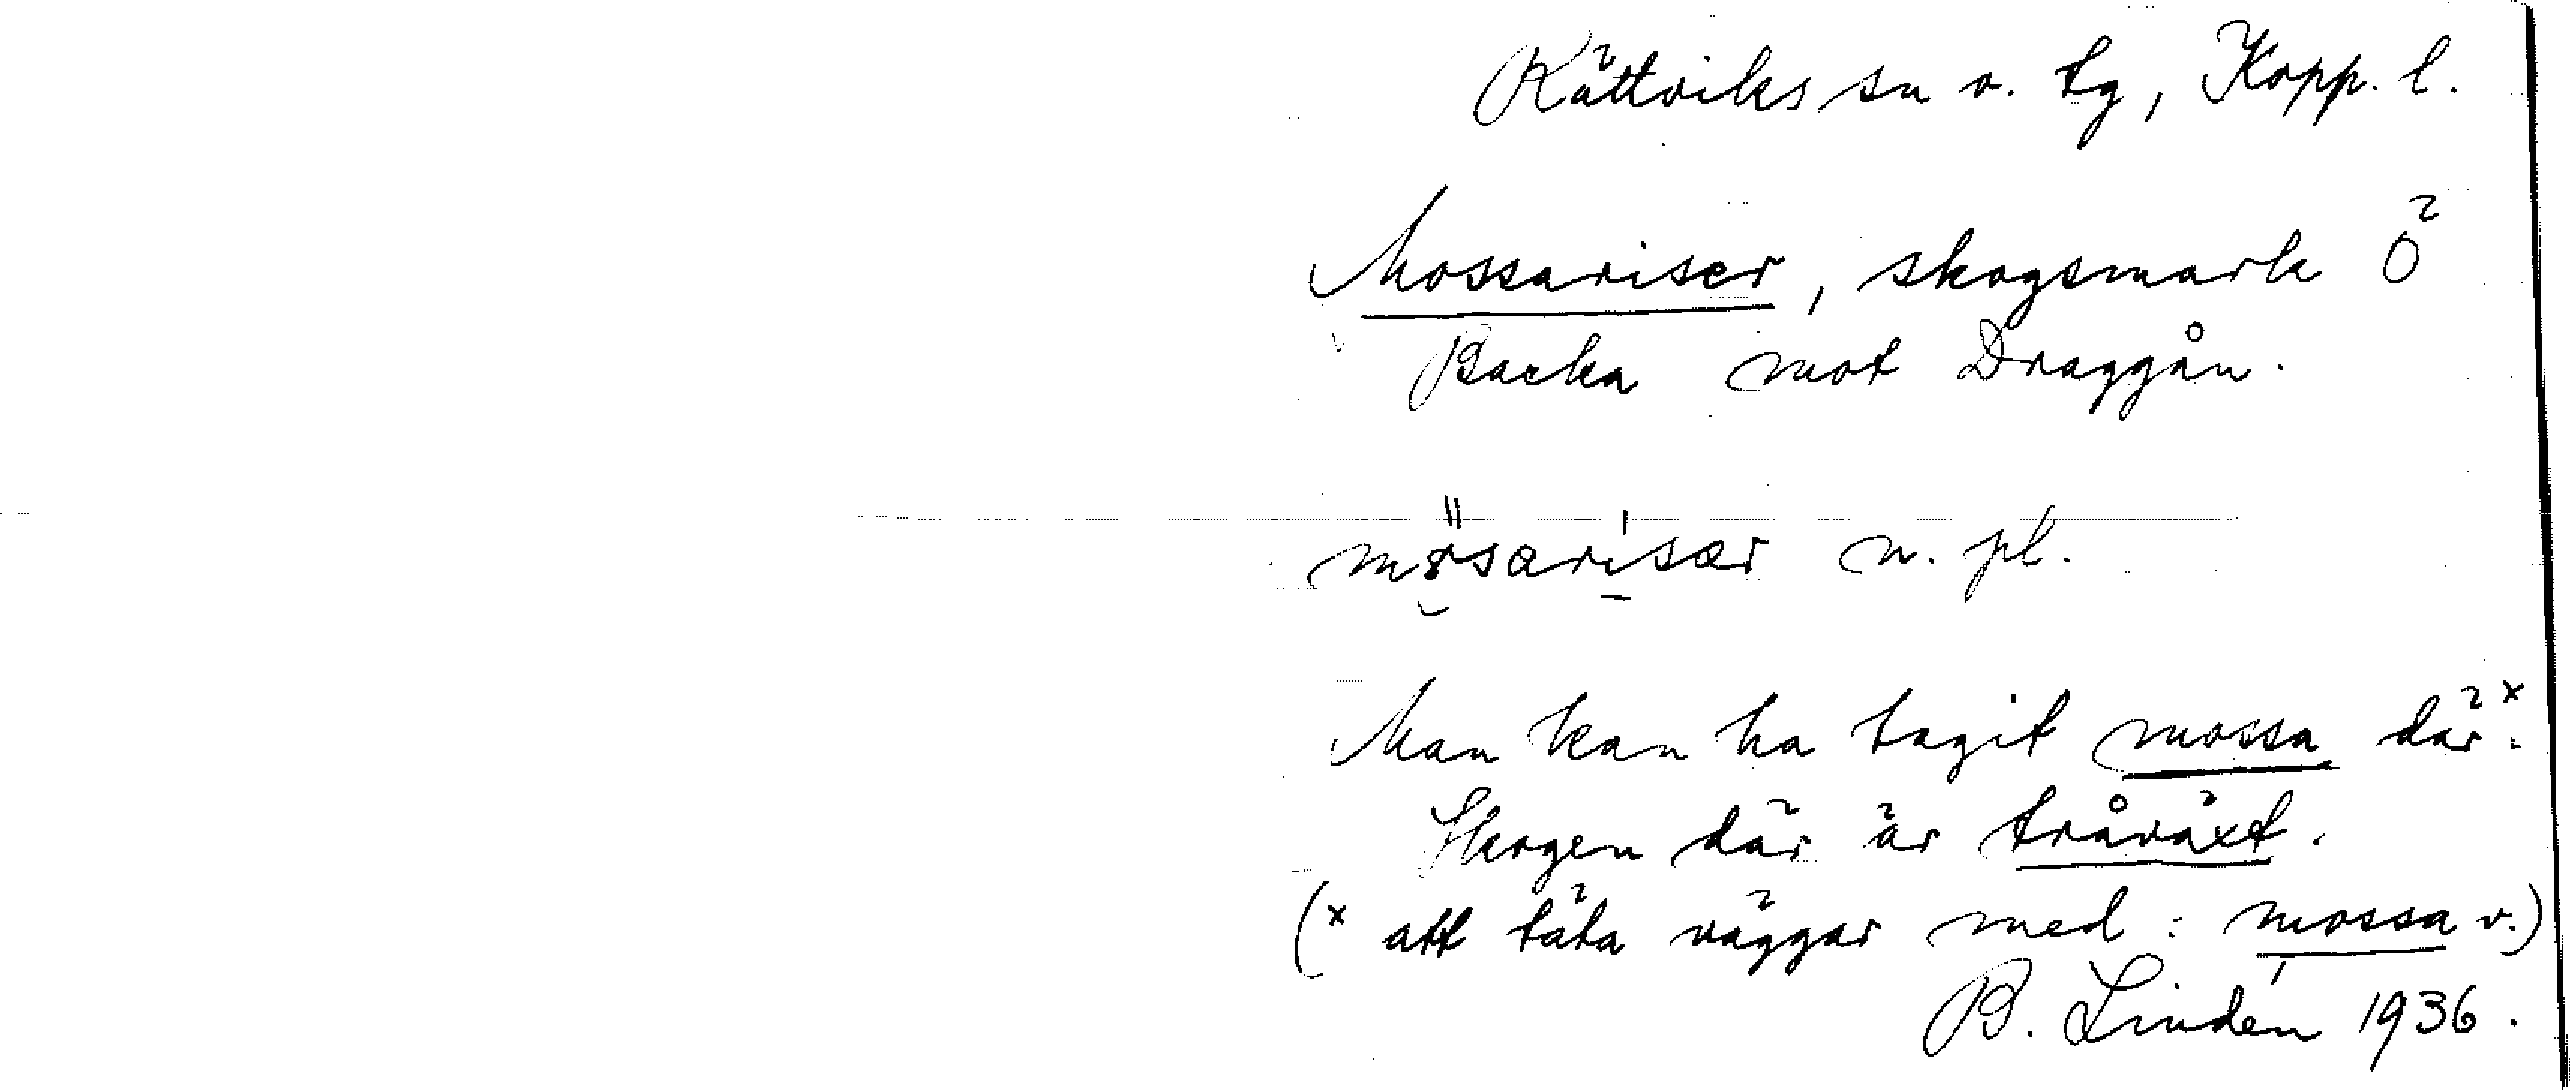 Rättviks sn o. tg, Kopp. l.
Mossariser, skogsmark Ö
Backa mot Draggån.
n. pl.
Man kan ha tagit mossa där.ˣ
Skogen där är tråväxt.
(ˣ att täta väggar med : mossa v.)
B. Lindén 1936.